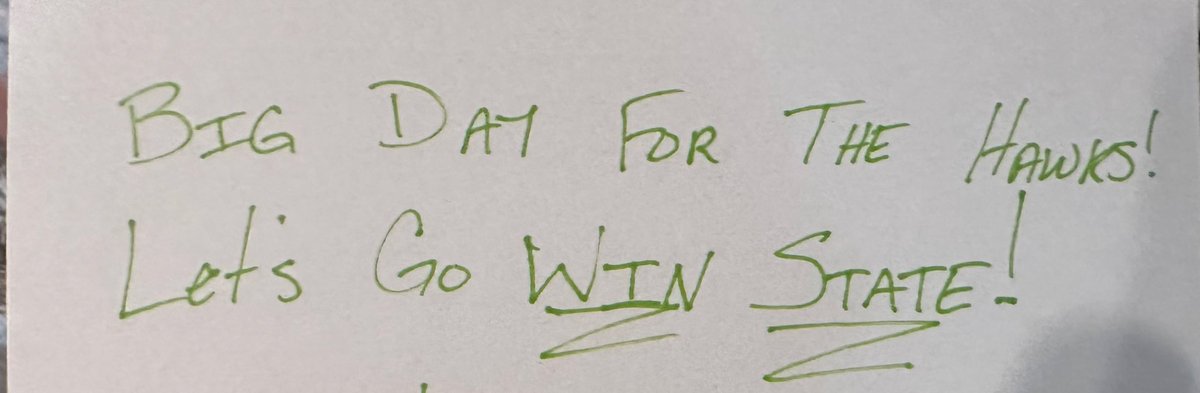 BIG DAY FOR THE HAWKS!
Let's Go WIN STATE!